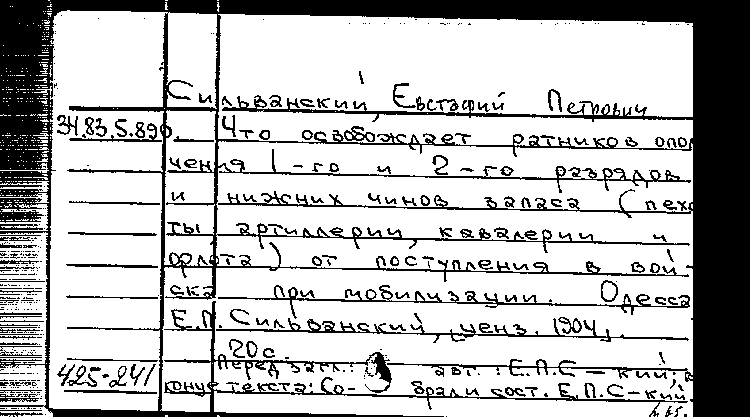 Сильванский, Евстафий Петрович
34.83.5.890. Что освобождает ратников опол
чения 1-го и 2-го разрядов
и нижних чинов запаса (пехо
ты артиллерии, кавалерии и
флота) от поступления в вой-
ска при мобилизации. Одесса
Е.П. Сильванский, ценз. 1904.
20с.
Перед загл.: авт.: Е.П.С-кий; в
425-241 конце текста: Со- брали сост. Е.П.С-кий.